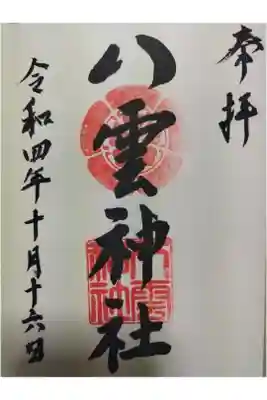 奉拝
八雲神社
八雲神社
令和四年十月十六日